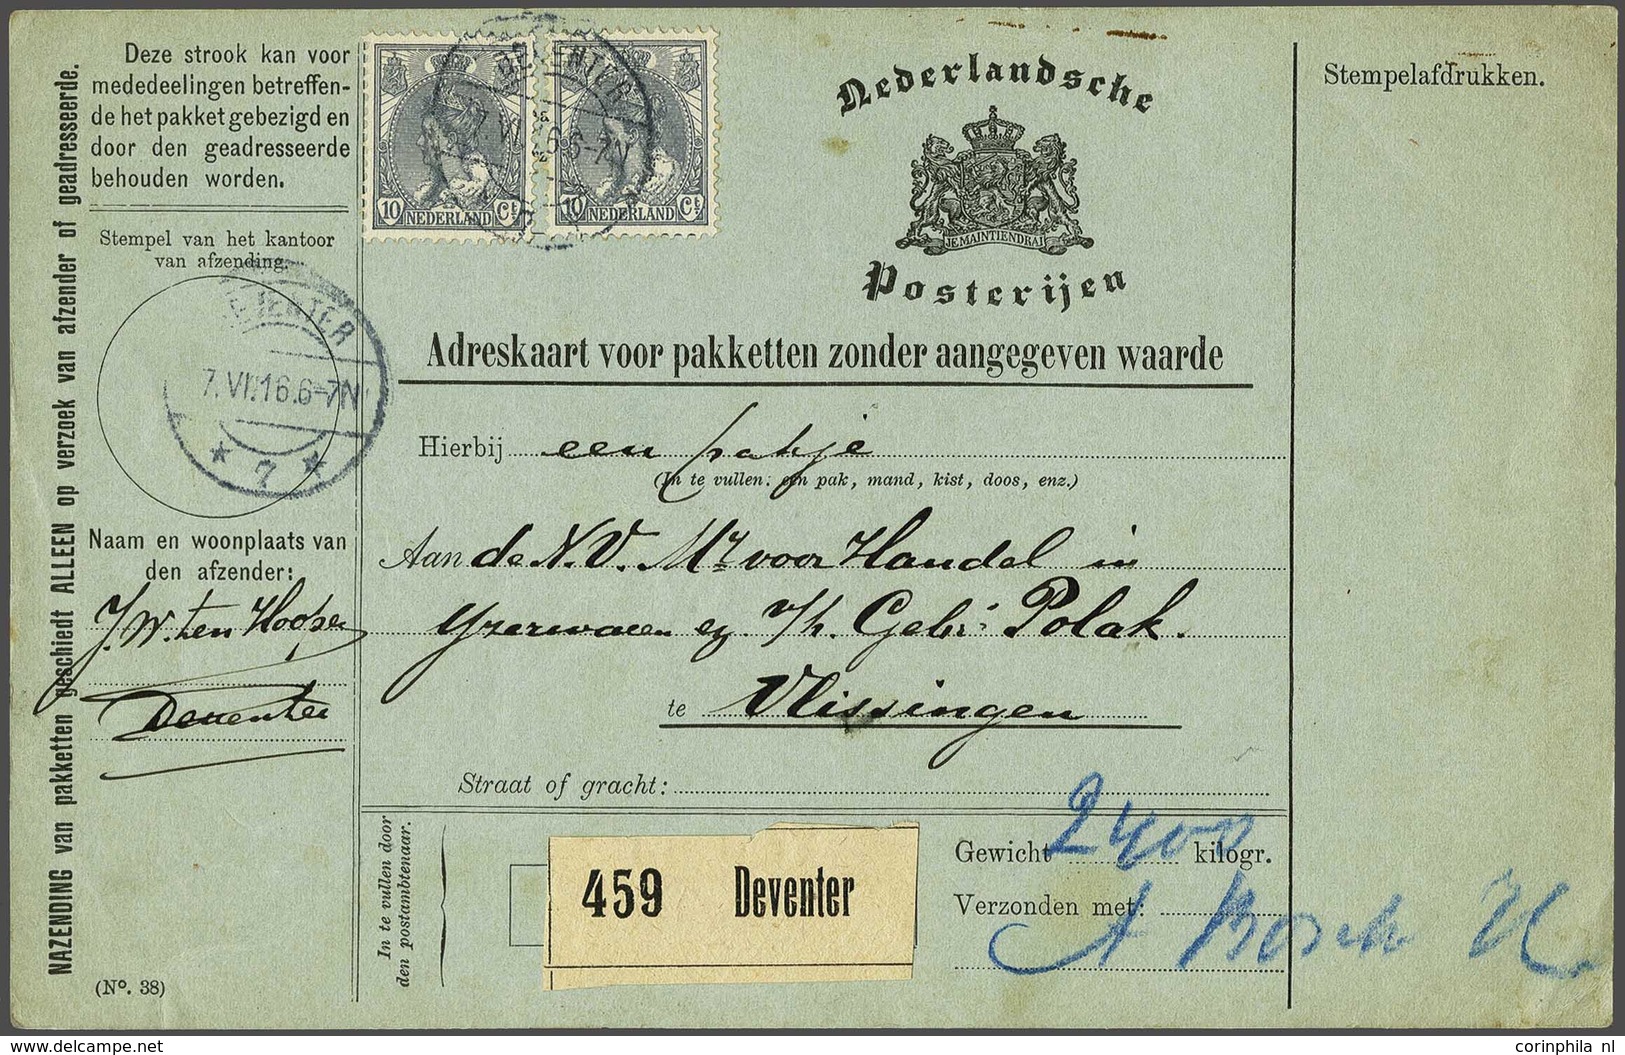 NAZENDING van pakketten geschiedt ALLEEN op verzoek van afzender of geadresseerde.
Deze strook kan voor
mededeelingen betreffen-
de het pakket gebezigd en
door den geadresseerde
behouden worden.
Stempel van het kantoor
van afzending.
DEVENTER
7.VI.16.6-7N
* 7 *
Naam en woonplaats van
den afzender:
J.W. ten
Deventer
(No. 38)
10 NEDERLAND Ct
10 NEDERLAND Ct
DEVENTER
7.VI.16 6-7N
Nederlandsche
JE MAINTIENDRAI
Posterijen
Adreskaart voor pakketten zonder aangegeven waarde
Hierbij een pakje
(In te vullen: een pak, mand, kist, doos, enz.)
Aan de N.V. Mij voor Handel in
Yzerwaren eg. v/h. Gebr. Polak.
te Vlissingen
Straat of gracht:
In te vullen door
den postambtenaar.
459 Deventer
Gewicht 2400 kilogr.
Verzonden met:
A Bosch
Stempelafdrukken.
corinphila nl